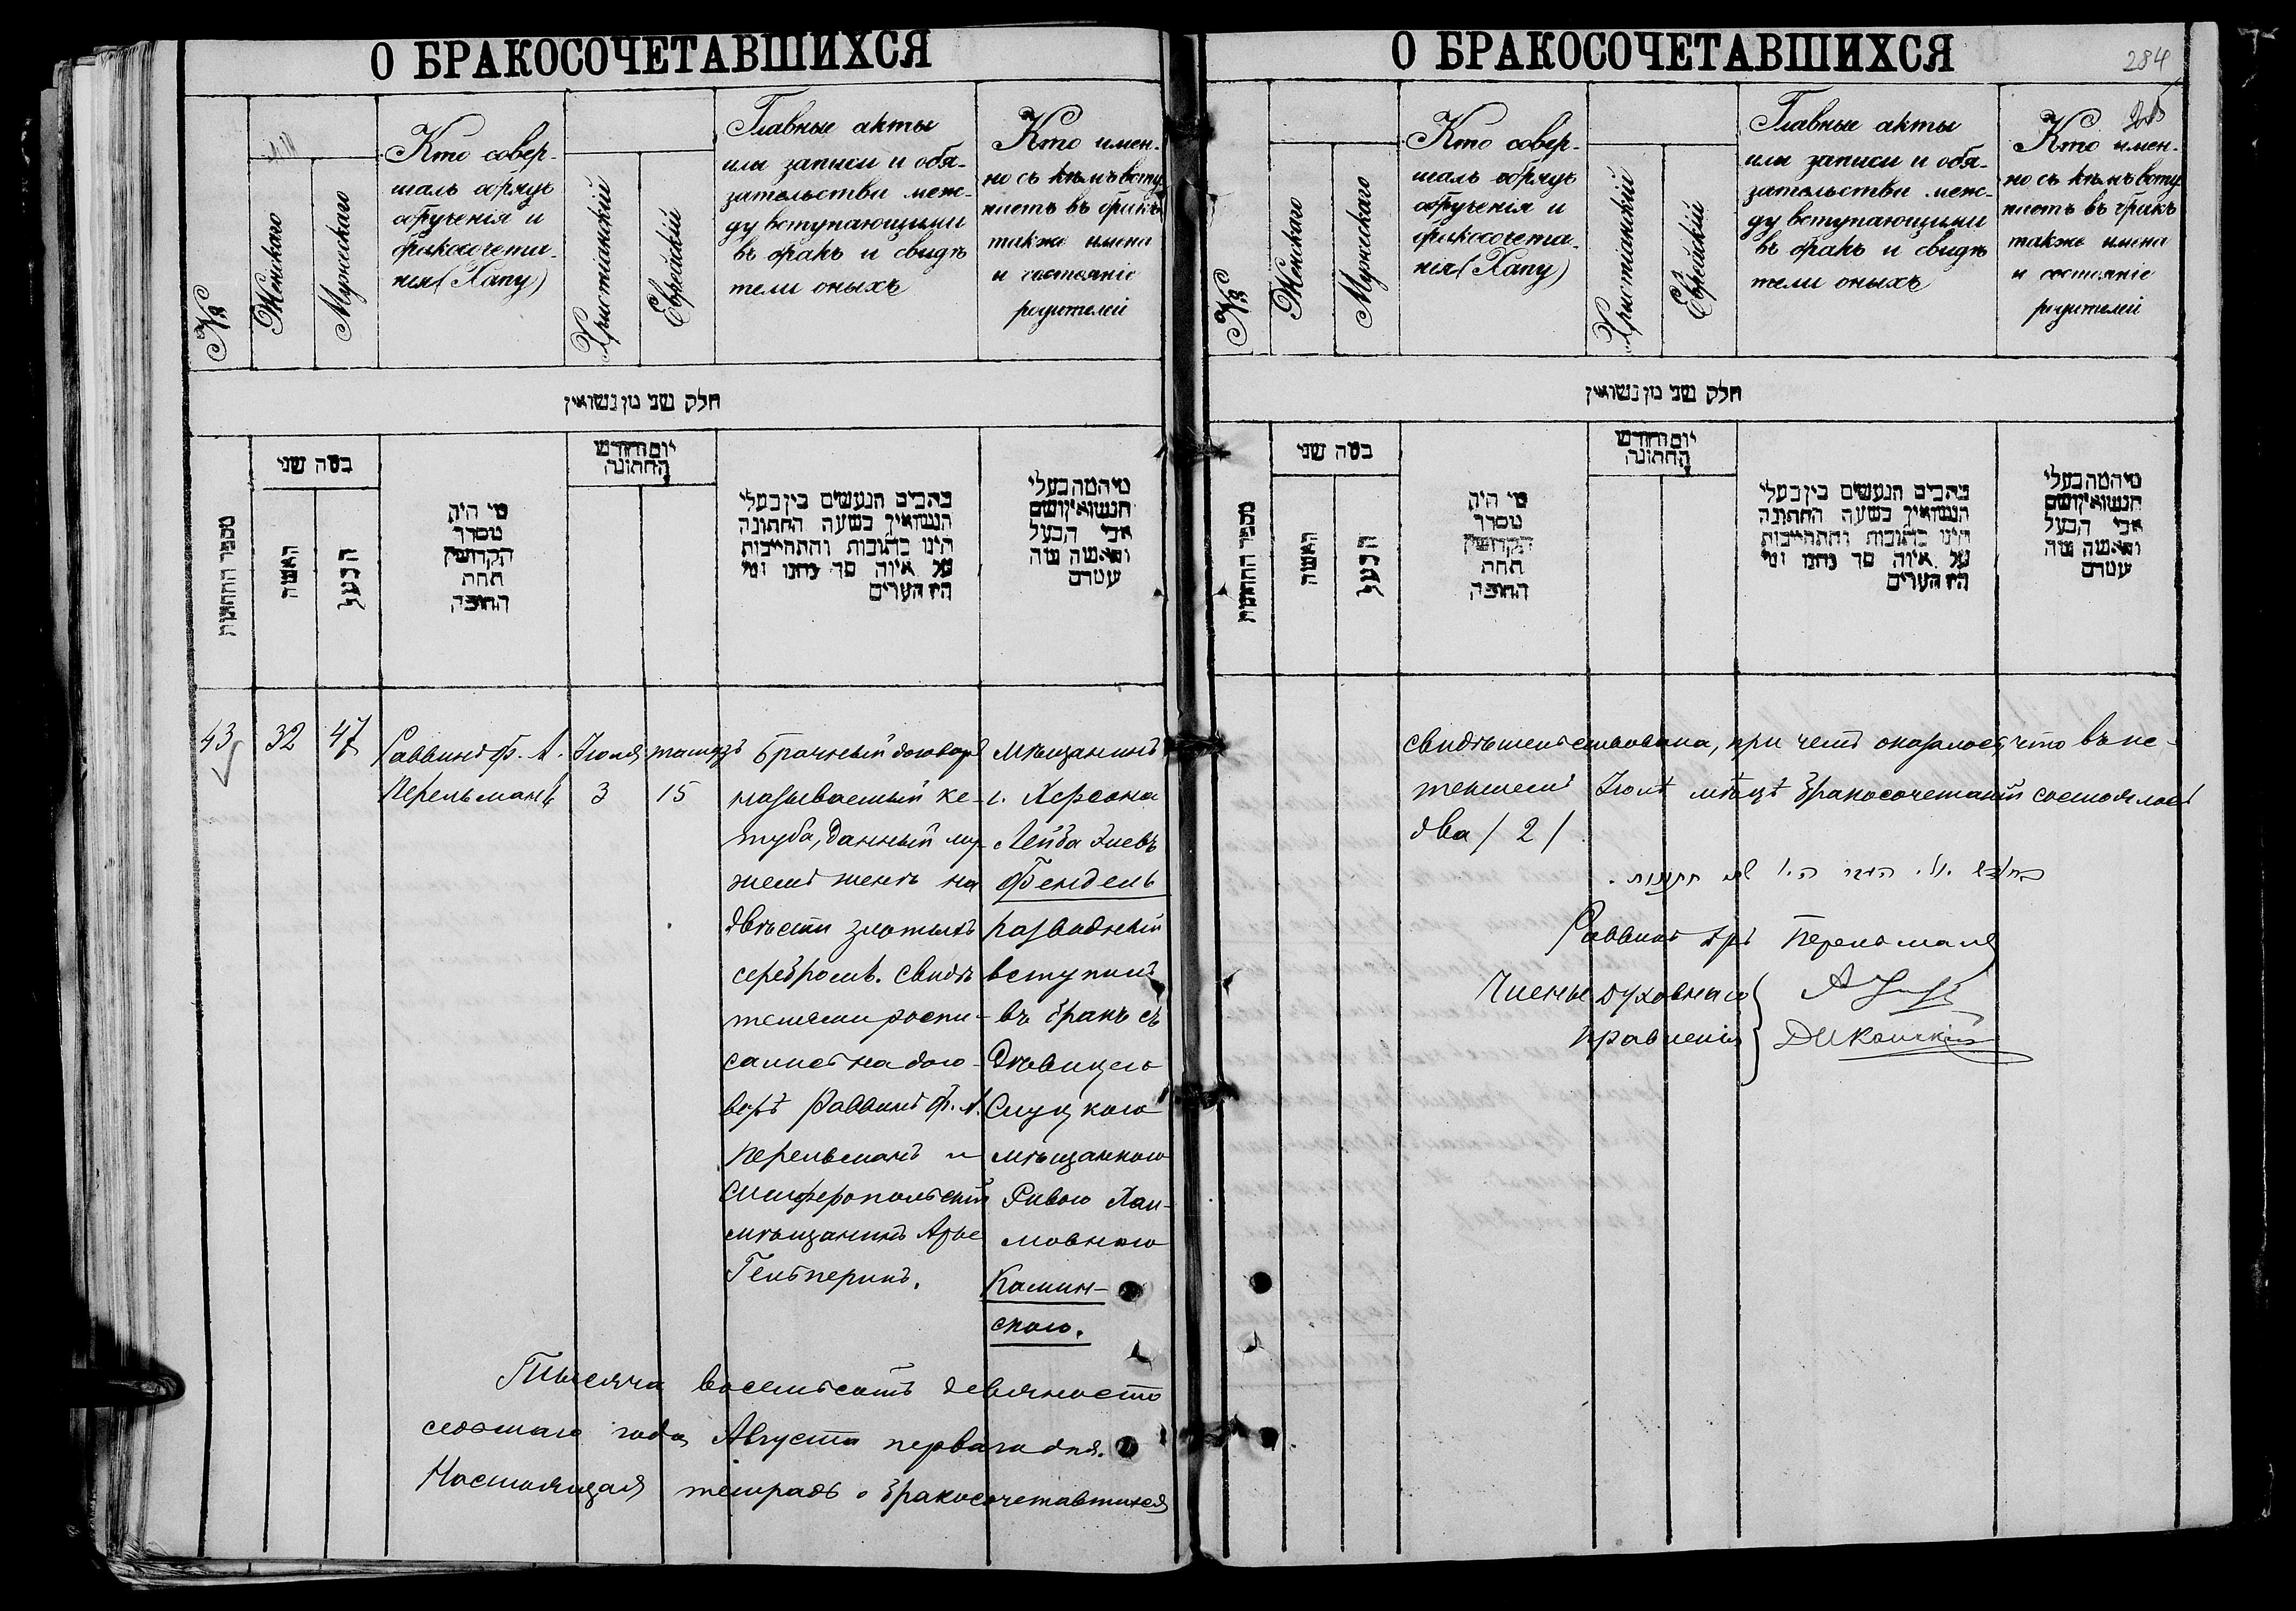 О БРАКОСОЧЕТАВШИХСЯ
№
Женскаго
Мужескаго
Кто совер-
шалъ обрядъ
обрученія и
бракосочета-
нія (Хапу)
Христіанскій
Еврейскій
Главные акты
или записи и обя-
зательства меж-
ду вступающими
въ бракъ и свидѣ
тели оныхъ
Кто имен-
но съ кѣмъ всту
паетъ въ бракъ
также имена
и состояніе
родителей
חלק שני מן נשואין
מספר החתונות
כמה שני
האשה
הבעל
מי היה
מסדר
הקדושין
תחת
החופה
יום וחודש
החתונה
כתבים הנעשים בין בעלי
הנשואין בשעה החתונה
היינו כתובות והתחייבות
על איזה סך נתנו ומי
היו העדים
מי המה בעלי
הנשואין ושם
אבי הבעל
והאשה מה
עטרם
43 32 47 Раввинъ Ф. А. Іюля тамузъ Брачный договоръ мѣщанинъ
Перельманъ 3 15 называемый ке- г. Херсона
туба, данный му- Лейба
жемъ женѣ на Фендель
двѣсти злотыхъ разводный
серебромъ. Свидѣ вступилъ
телями роспи- въ бракъ съ
сались на дого- дѣвицею
ворѣ Раввинъ Ф. А. Слуцкою
Перельманъ и мѣщанкою
Симферопольскій Ривою Хаи-
мѣщанинъ Арье мовною
Гельперинъ. Камин-
скою.
Тысяча восемьсотъ девяносто
седьмаго года Августа перваго дня.
Настоящая тетрадь о бракосочетавшихся
О БРАКОСОЧЕТАВШИХСЯ
284
№
Женскаго
Мужескаго
Кто совер-
шалъ обрядъ
обрученія и
бракосочета-
нія (Хапу)
Христіанскій
Еврейскій
Главные акты
или записи и обя-
зательства меж-
ду вступающими
въ бракъ и свидѣ
тели оныхъ
Кто имен-
но съ кѣмъ всту
паетъ въ бракъ
также имена
и состояніе
родителей
חלק שני מן נשואין
מספר החתונות
כמה שני
האשה
הבעל
מי היה
מסדר
הקדושין
תחת
החופה
יום וחודש
החתונה
כתבים הנעשים בין בעלי
הנשואין בשעה החתונה
היינו כתובות והתחייבות
על איזה סך נתנו ומי
היו העדים
מי המה בעלי
הנשואין ושם
אבי הבעל
והאשה מה
עטרם
свидѣтельствована, при чемъ оказалось, что въ ис-
текшемъ Іюлѣ мѣсяцѣ бракосочетаній состоялось
два / 2 /
חתונות
Раввинъ Перельманъ
Члены духовнаго
правленія